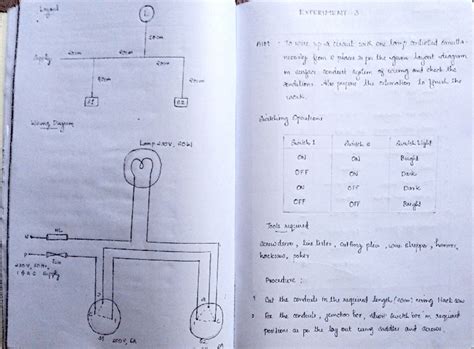 Layout
L1
20cm
Supply
60cm
60cm
60cm
40cm
40cm
S1
S2
Wiring Diagram
Lamp 230V, 60W
N
NL
P
Fuse
230V, 50Hz,
1 φ AC Supply
S1
230V, 6A
S2
EXPERIMENT 3
AIM : To wire up a circuit with one lamp controlled simulta-
neously from 2 places as per the given layout diagram
in surface conduit system of wiring and check the
conditions. Also prepare the estimation to finish the
work.
Switching Operations
Switch 1 Switch 2 Switch Light
ON ON Bright
OFF ON Dark
ON OFF Dark
OFF OFF Bright
Tools required
Screwdriver, line tester, cutting plier, wire stripper, hammer,
hacksaw, poker
Procedure :
1 Cut the conduits in the required length (40cm) using Hack saw
2 Fix the conduits, junction box, switch box in required
positions as per the lay out using saddles and screws.